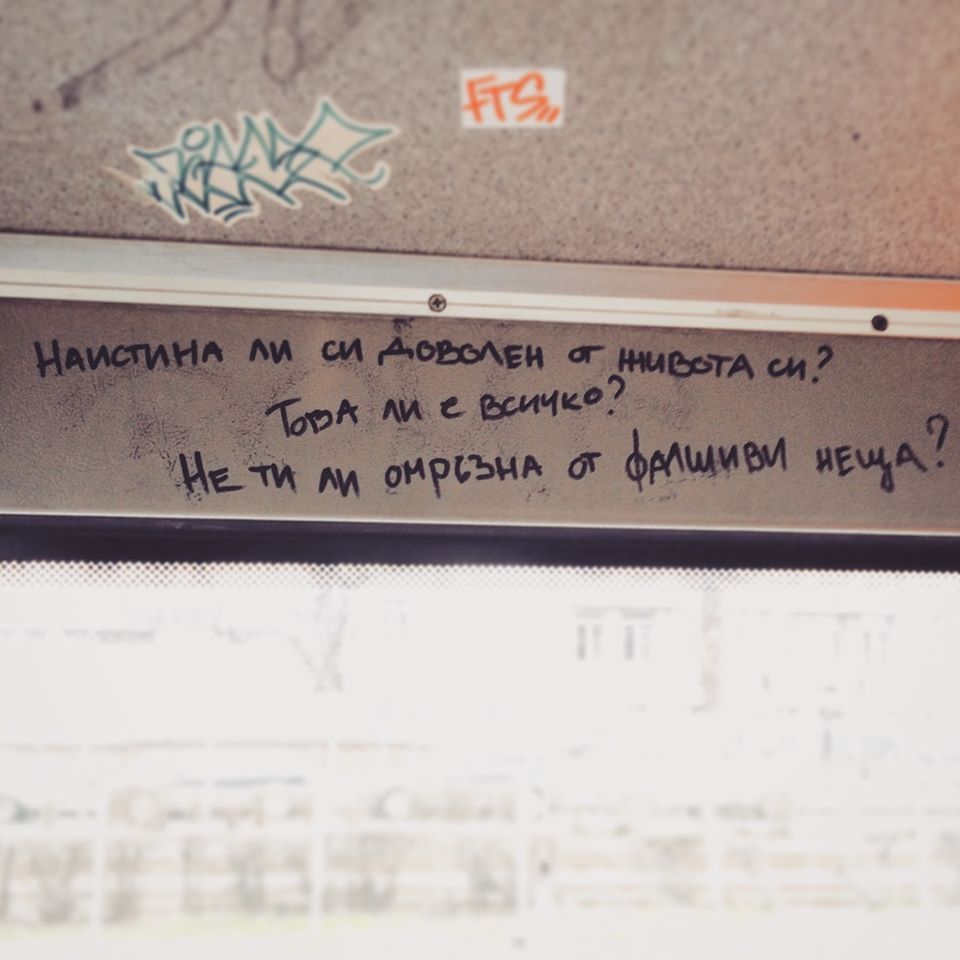 FTS
Наистина ли си доволен от живота си?
Това ли е всичко?
Не ти ли омръзна от фалшиви неща?